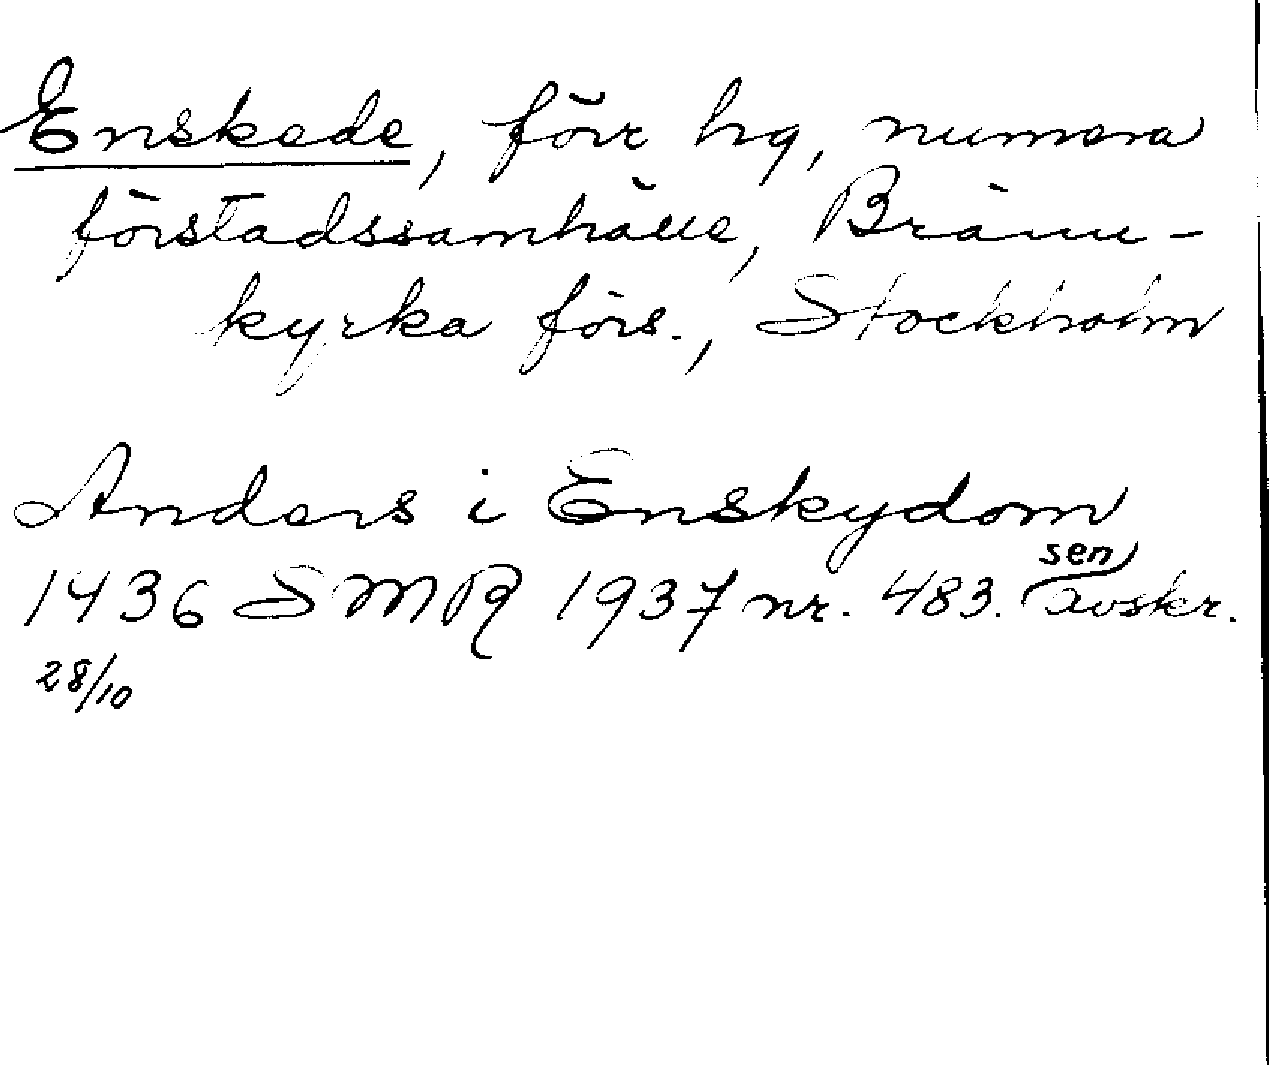 Enskede, förr hg, numera
förstadssamhälle, Bränn-
kyrka förs., Stockholm
Anders i Enskydom
sen
1436 SMR 1937 nr. 483. avskr.
28/10